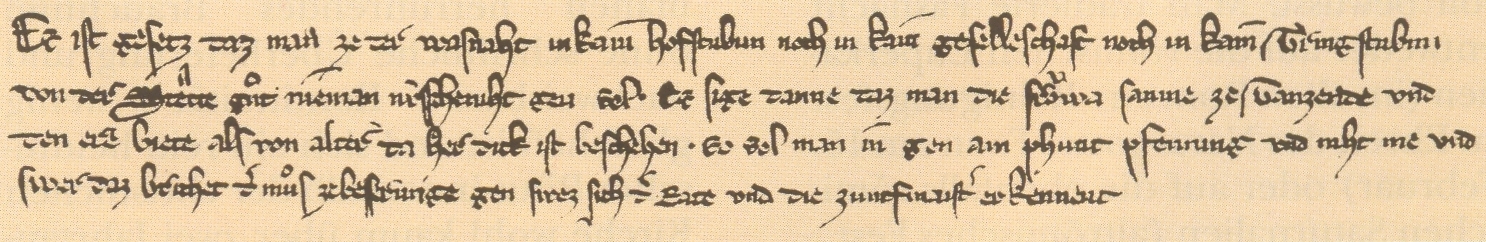 Ez ist gesetz daz man ze der vasnaht in kain hofstubun noch in kain geselleschaft noch in kain
von der Stette guͦt nieman niht gen sol. Ez sige danne daz man die froͮwa samne ze tanzende vnd
den ere biete als von alter da her dick ist beschehen. So sol man in gen ain phunt pfenning vnd niht me vnd
swer daz brichet der muͦs ze besserunge gen swez sich der Rate vnd die zunftmaister erkennent